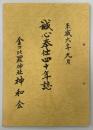 平成六年九月
誠心奉仕四十年誌
金刀比羅神社 神和会